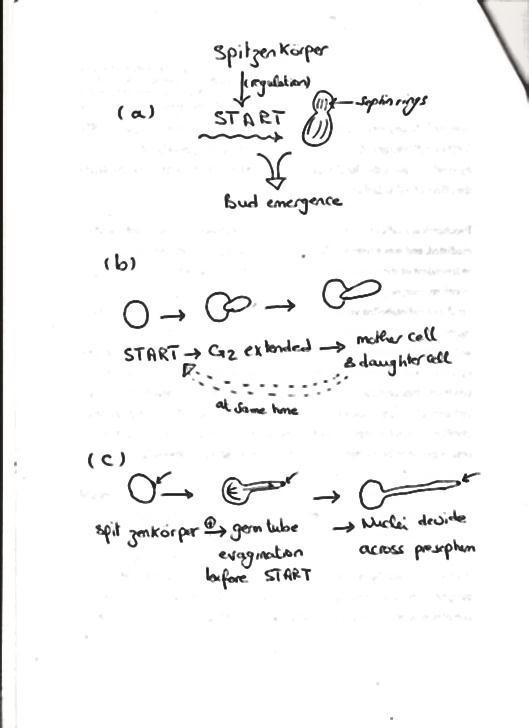 Spitzenkörper
(regulation)
(a)
START
Septin rings
Bud emergence
(b)
START → G2 extended → mother cell
& daughter cell
at same time
(c)
Spitzenkörper ⊕→ germ tube
evagination
before START
→ Nuclei devide
across preseptum